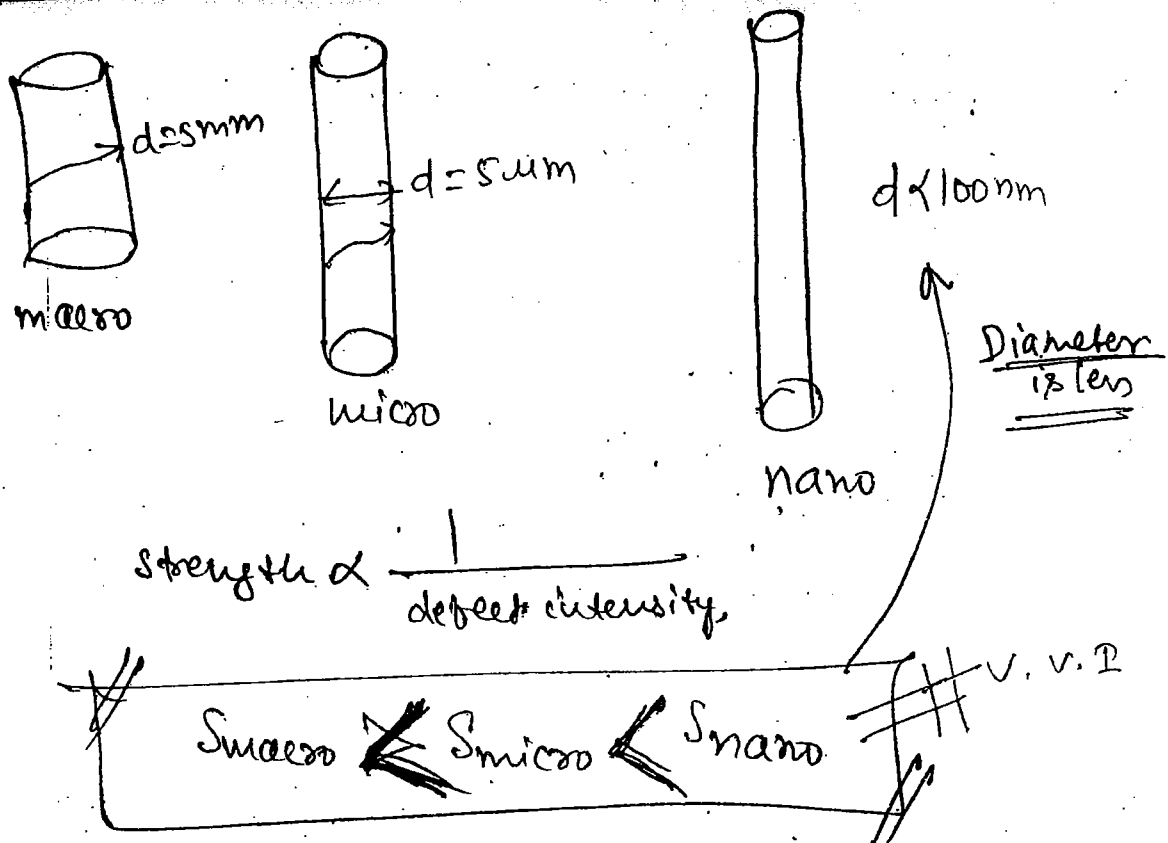 d=5mm
d = 5 μm
d < 100 nm
macro
micro
nano
Diameter
is less
strength ∝ 1
defect intensity,
Smacro < Smicro < Snano
V. V. I